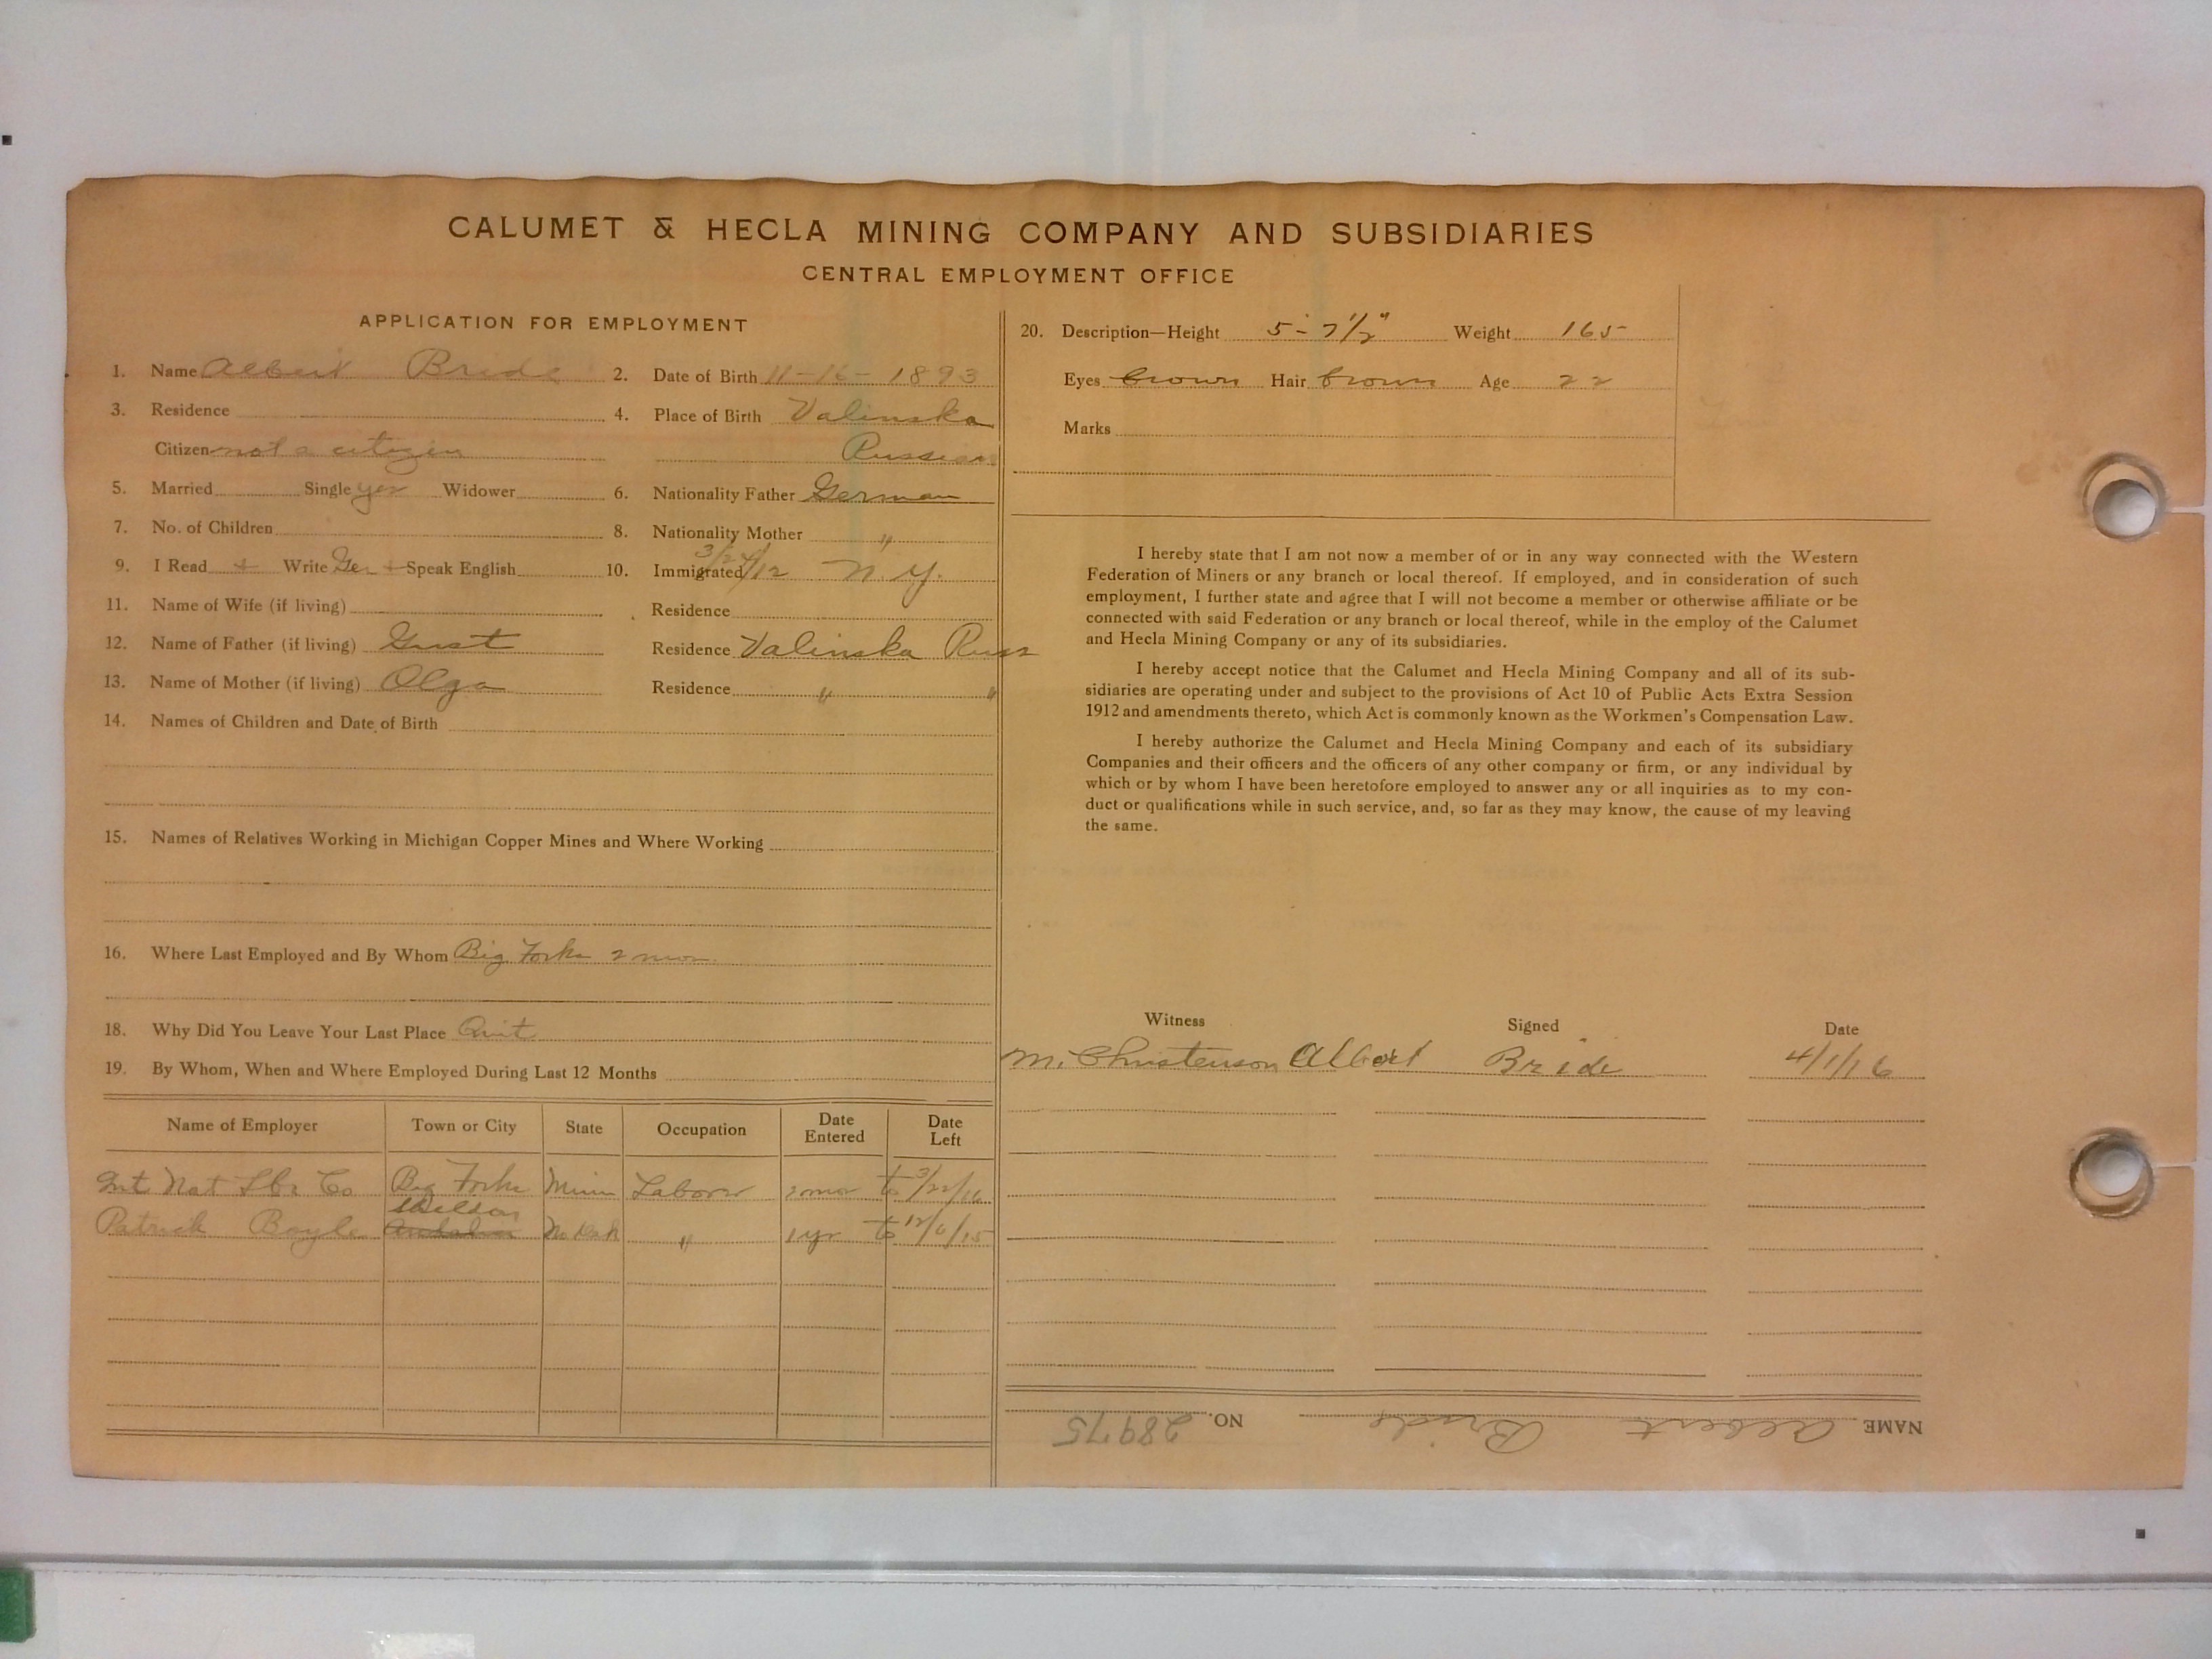 CALUMET & HECLA MINING COMPANY AND SUBSIDIARIES
CENTRAL EMPLOYMENT OFFICE
APPLICATION FOR EMPLOYMENT
1. Name Albert Bride 2. Date of Birth 11-16-1893
3. Residence 4. Place of Birth Valinska
Citizen not a citizen Russian
5. Married Single yes Widower 6. Nationality Father German
7. No. of Children 8. Nationality Mother "
9. I Read + Write Ger + Speak English 10. Immigrated 3/24/12 N.Y.
11. Name of Wife (if living) Residence
12. Name of Father (if living) Gust Residence Valinska Russ
13. Name of Mother (if living) Olga Residence " "
14. Names of Children and Date of Birth
15. Names of Relatives Working in Michigan Copper Mines and Where Working
16. Where Last Employed and By Whom Big Forks 2 mon.
18. Why Did You Leave Your Last Place Quit
19. By Whom, When and Where Employed During Last 12 Months
Name of Employer Town or City State Occupation Date Entered Date Left
Int Nat Lbr Co Big Forks Minn Laborer 2 mon to 3/22/16
Patrick Boyle No Dak " 1 yr to 12/6/15
20. Description—Height 5-7½" Weight 165
Eyes brown Hair brown Age 22
Marks
I hereby state that I am not now a member of or in any way connected with the Western
Federation of Miners or any branch or local thereof. If employed, and in consideration of such
employment, I further state and agree that I will not become a member or otherwise affiliate or be
connected with said Federation or any branch or local thereof, while in the employ of the Calumet
and Hecla Mining Company or any of its subsidiaries.
I hereby accept notice that the Calumet and Hecla Mining Company and all of its sub-
sidiaries are operating under and subject to the provisions of Act 10 of Public Acts Extra Session
1912 and amendments thereto, which Act is commonly known as the Workmen's Compensation Law.
I hereby authorize the Calumet and Hecla Mining Company and each of its subsidiary
Companies and their officers and the officers of any other company or firm, or any individual by
which or by whom I have been heretofore employed to answer any or all inquiries as to my con-
duct or qualifications while in such service, and, so far as they may know, the cause of my leaving
the same.
Witness Signed Date
M. Christenson Albert Bride 4/1/16
NAME Albert Bride NO. 28975